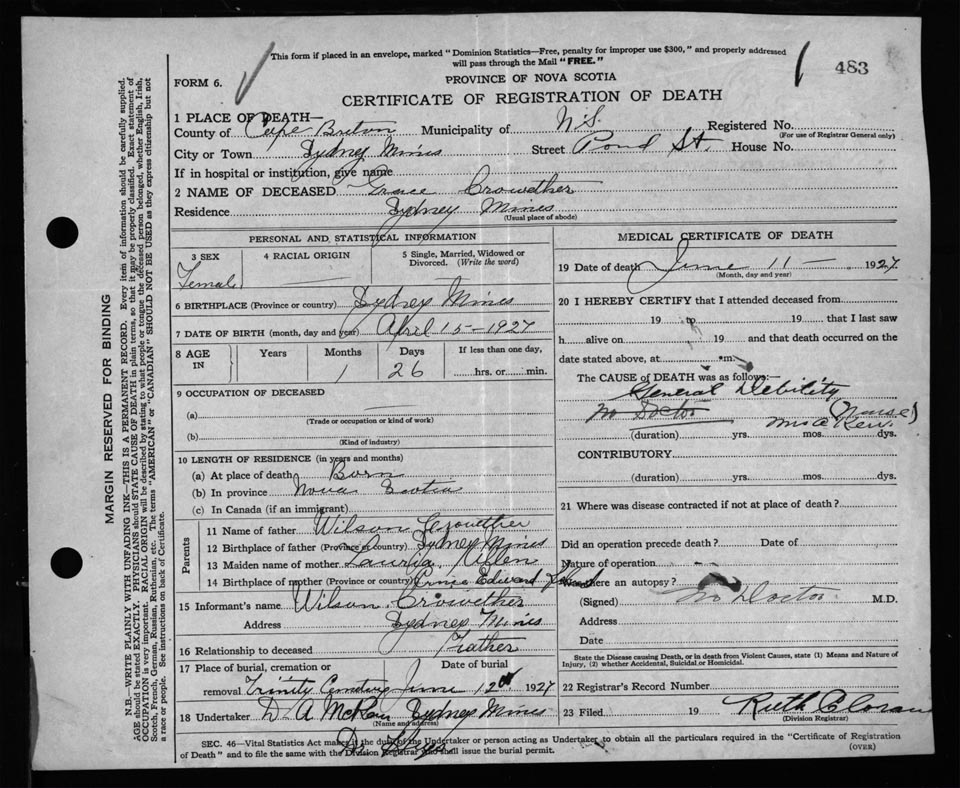 This form if placed in an envelope, marked "Dominion Statistics—Free, penalty for improper use $300," and properly addressed
will pass through the Mail "FREE."
483
FORM 6.
PROVINCE OF NOVA SCOTIA
CERTIFICATE OF REGISTRATION OF DEATH
1 PLACE OF DEATH—
County of Cape Breton Municipality of N.S. Registered No.
(For use of Registrar General only)
City or Town Sydney Mines Street Pond St. House No.
If in hospital or institution, give name
2 NAME OF DECEASED Grace Crowether
Residence Sydney Mines
(Usual place of abode)
PERSONAL AND STATISTICAL INFORMATION
3 SEX 4 RACIAL ORIGIN 5 Single, Married, Widowed or
Divorced. (Write the word)
Female
6 BIRTHPLACE (Province or country) Sydney Mines
7 DATE OF BIRTH (month, day and year) April 15—1927
8 AGE IN Years Months Days If less than one day,
1 26 hrs. or min.
9 OCCUPATION OF DECEASED
(a)
(Trade or occupation or kind of work)
(b)
(Kind of industry)
10 LENGTH OF RESIDENCE (in years and months)
(a) At place of death Born
(b) In province Nova Scotia
(c) In Canada (if an immigrant)
Parents
11 Name of father Wilson Crowether
12 Birthplace of father (Province or country) Sydney Mines
13 Maiden name of mother Allen
14 Birthplace of mother (Province or country) Prince Edward
15 Informant's name Wilson Crowether
Address Sydney Mines
16 Relationship to deceased Father
17 Place of burial, cremation or Date of burial
removal Trinity Cemetery June 12 1927
18 Undertaker D. A. Sydney Mines
(Name and address)
MEDICAL CERTIFICATE OF DEATH
19 Date of death June 11— 1927
(Month, day and year)
20 I HEREBY CERTIFY that I attended deceased from
19 to 19 that I last saw
h alive on 19 and that death occurred on the
date stated above, at m.
The CAUSE of DEATH was as follows:—
General Debility
No Doctor (Nurse)
Mrs
(duration) yrs. mos. dys.
CONTRIBUTORY
(duration) yrs. mos. dys.
21 Where was disease contracted if not at place of death?
Did an operation precede death? Date of
Nature of operation
Was there an autopsy?
(Signed) No Doctor M.D.
Address
Date
State the Disease causing Death, or in death from Violent Causes, state (1) Means and Nature of
Injury, (2) whether Accidental, Suicidal or Homicidal.
22 Registrar's Record Number
23 Filed 19 Ruth
(Division Registrar)
SEC. 46—Vital Statistics Act makes it the duty of the Undertaker or person acting as Undertaker to obtain all the particulars required in the "Certificate of Registration
of Death" and to file the same with the Division Registrar who shall issue the burial permit.
(OVER)
MARGIN RESERVED FOR BINDING
N.B.—WRITE PLAINLY WITH UNFADING INK—THIS IS A PERMANENT RECORD. Every item of information should be carefully supplied.
AGE should be stated EXACTLY. PHYSICIANS should STATE CAUSE OF DEATH in plain terms, so that it may be properly classified. Exact statement of
OCCUPATION is very important. RACIAL ORIGIN will be described by stating to what people or tongue the deceased person belonged, whether English, Irish,
Scotch, French, German, Russian, Ruthenian, etc. The terms "AMERICAN" or "CANADIAN" SHOULD NOT BE USED as they express citizenship but not
a race or people. See instructions on back of Certificate.